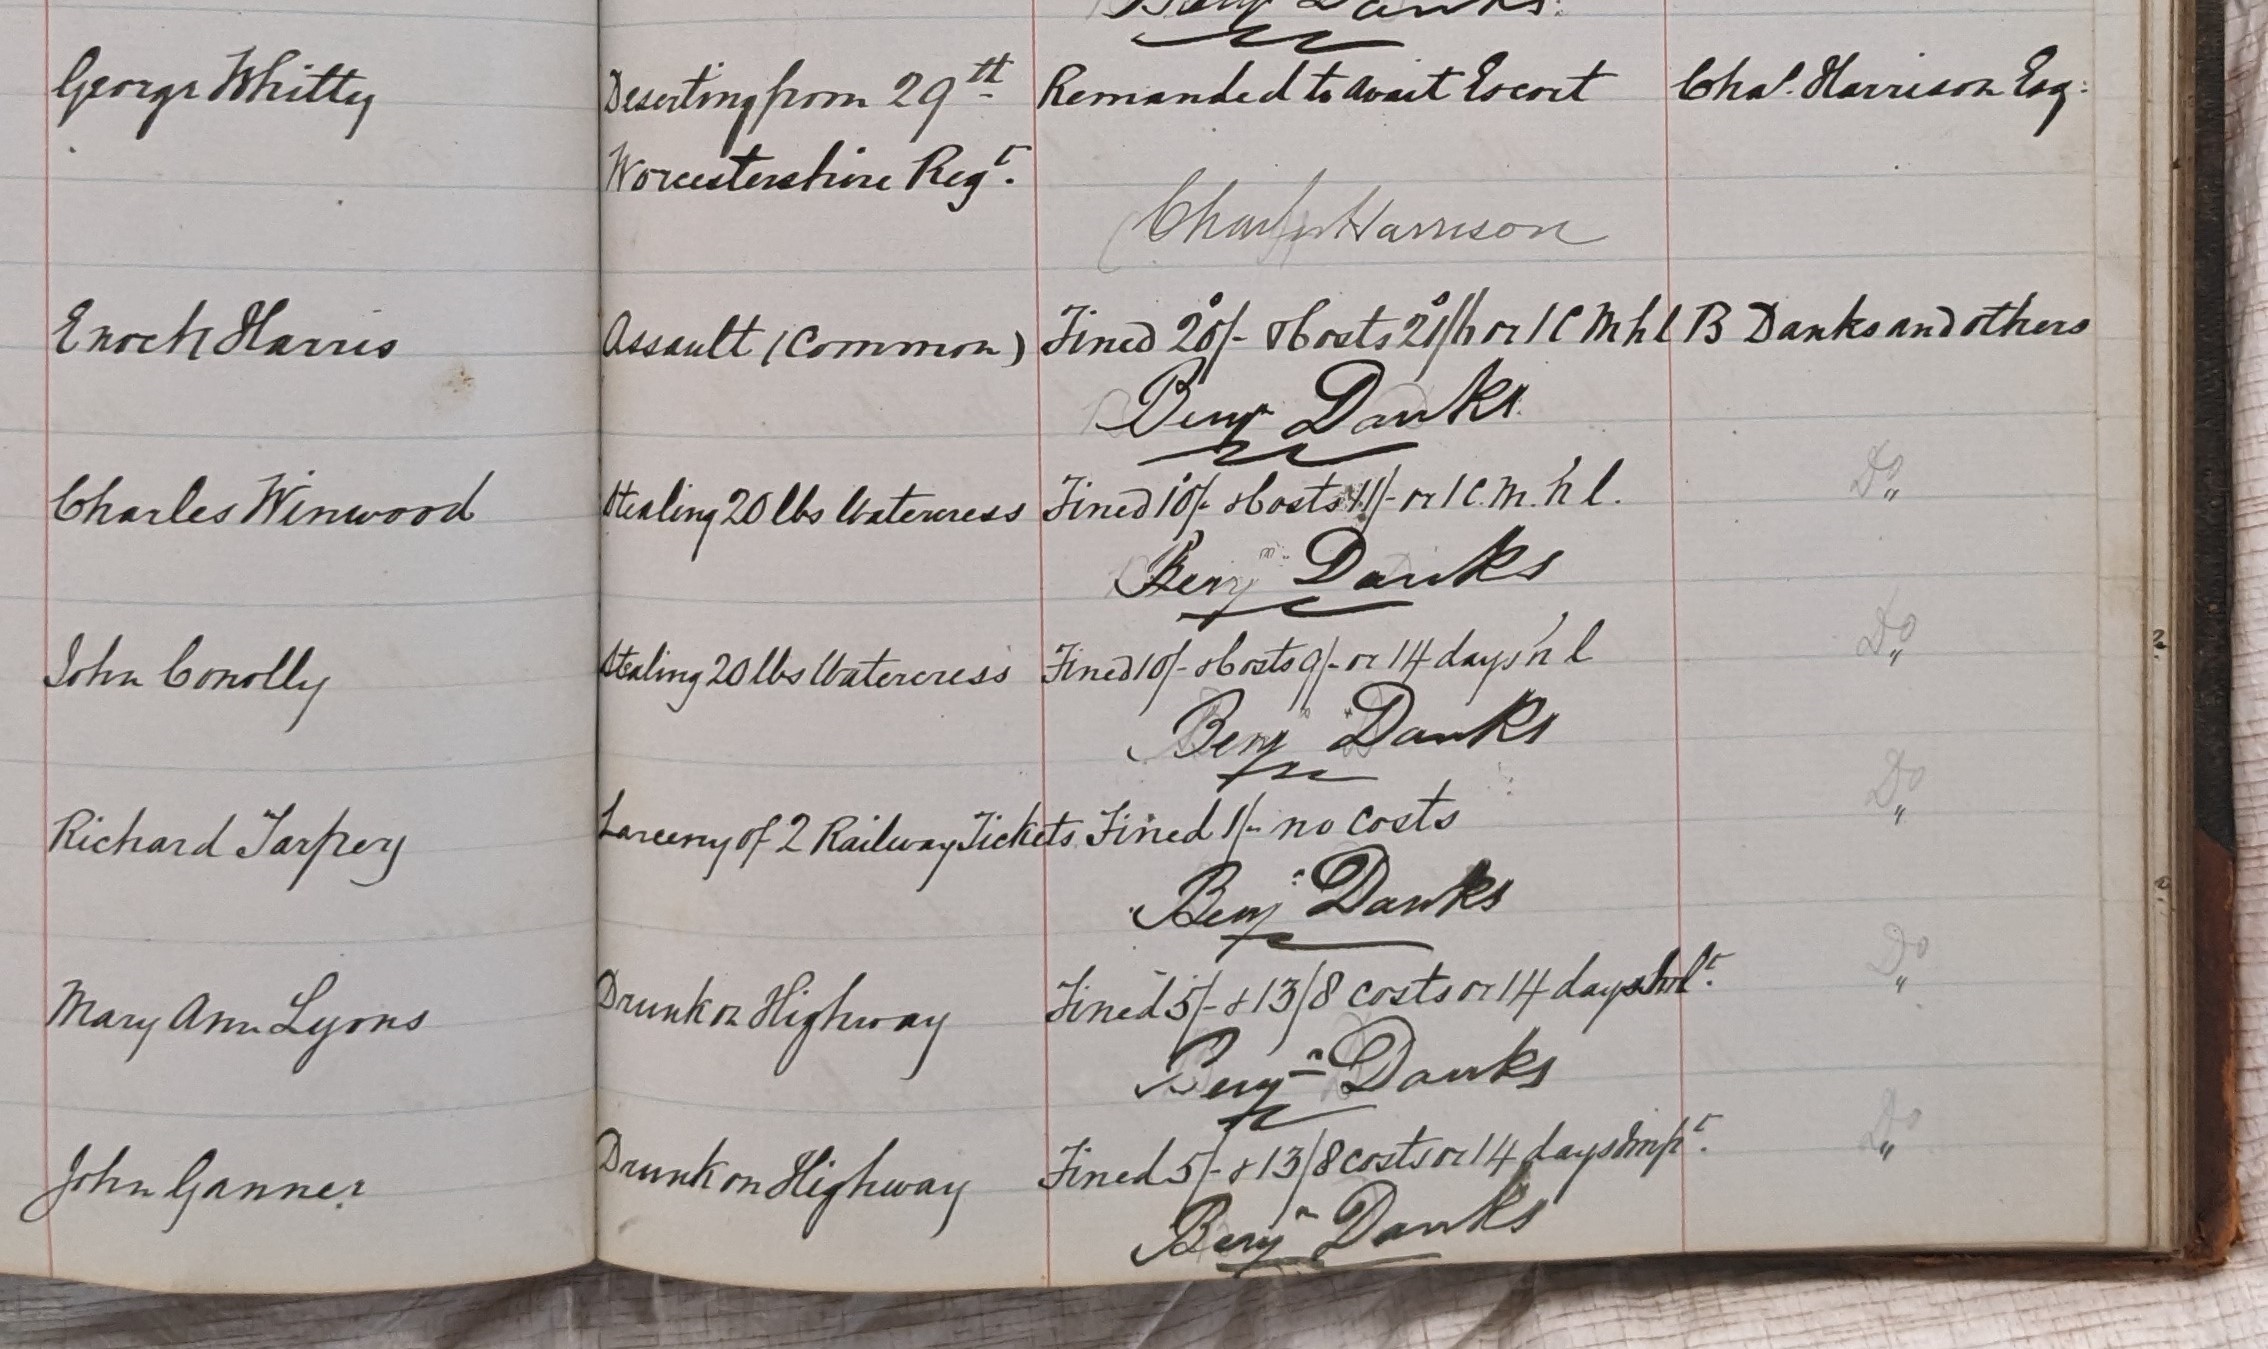 Benj Danks
George Whitty Deserting from 29th Remanded to await Escort Chas. Harrison Esq:
Worcestershire Regt.
Charles Harrison
Enoch Harris Assault (Common) Fined 20/- & Costs 21/6 or 1 C M h l B Danks and others
Benjn Danks
Charles Winwood Stealing 20 lbs Watercress Fined 10/- & Costs 11/- or 1 C. M. h l. Do
Benjn Danks
John Conolly Stealing 20 lbs Watercress Fined 10/- & Costs 9/- or 14 days h l Do
Benjn Danks
Richard Tarpey Larceny of 2 Railway Tickets Fined 1/- no costs Do
Benjn Danks
Mary Ann Lyons Drunk on Highway Fined 5/- & 13/8 costs or 14 days Do
Benjn Danks
John Ganner Drunk on Highway Fined 5/- & 13/8 costs or 14 days Impt. Do
Benjn Danks